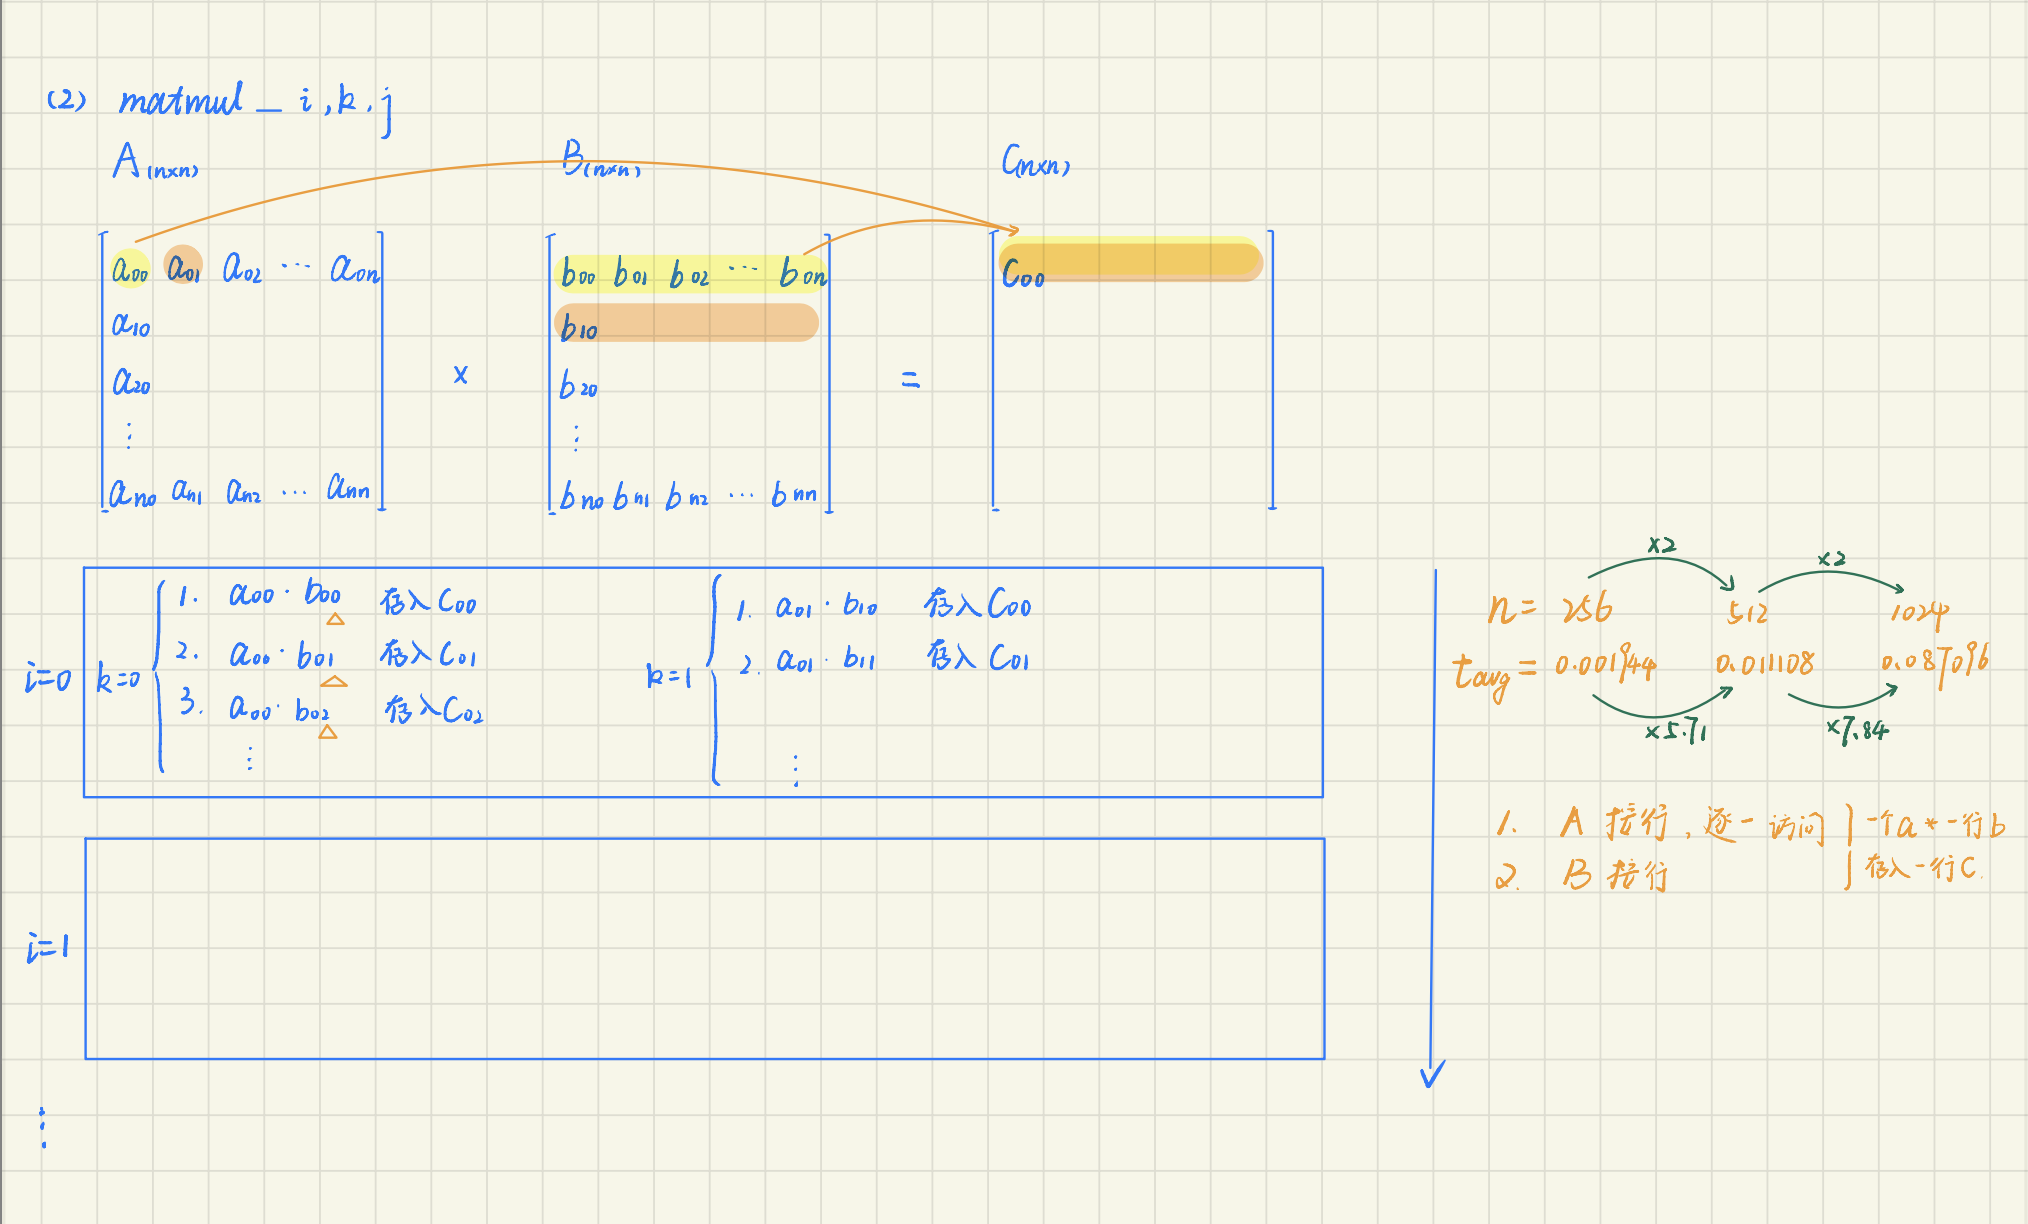 (2) matmul_i,k.j
A(n×n) B(n×n) C(n×n)
a00 a01 a02 ... a0n
a10
a20
⋮
an0 an1 an2 ... ann
×
b00 b01 b02 ... b0n
b10
b20
⋮
bn0 bn1 bn2 ... bnn
=
C00
i=0
k=0
1. a00·b00 存入C00
2. a00·b01 存入C01
3. a00·b02 存入C02
⋮
k=1
1. a01·b10 存入C00
2. a01·b11 存入C01
⋮
i=1
⋮
×2 ×2
n= 256 512 1024
tavg= 0.001944 0.011108 0.087096
×5.71 ×7.84
1. A 按行,逐一访问
2. B 按行
一个a*一行b
存入一行C.